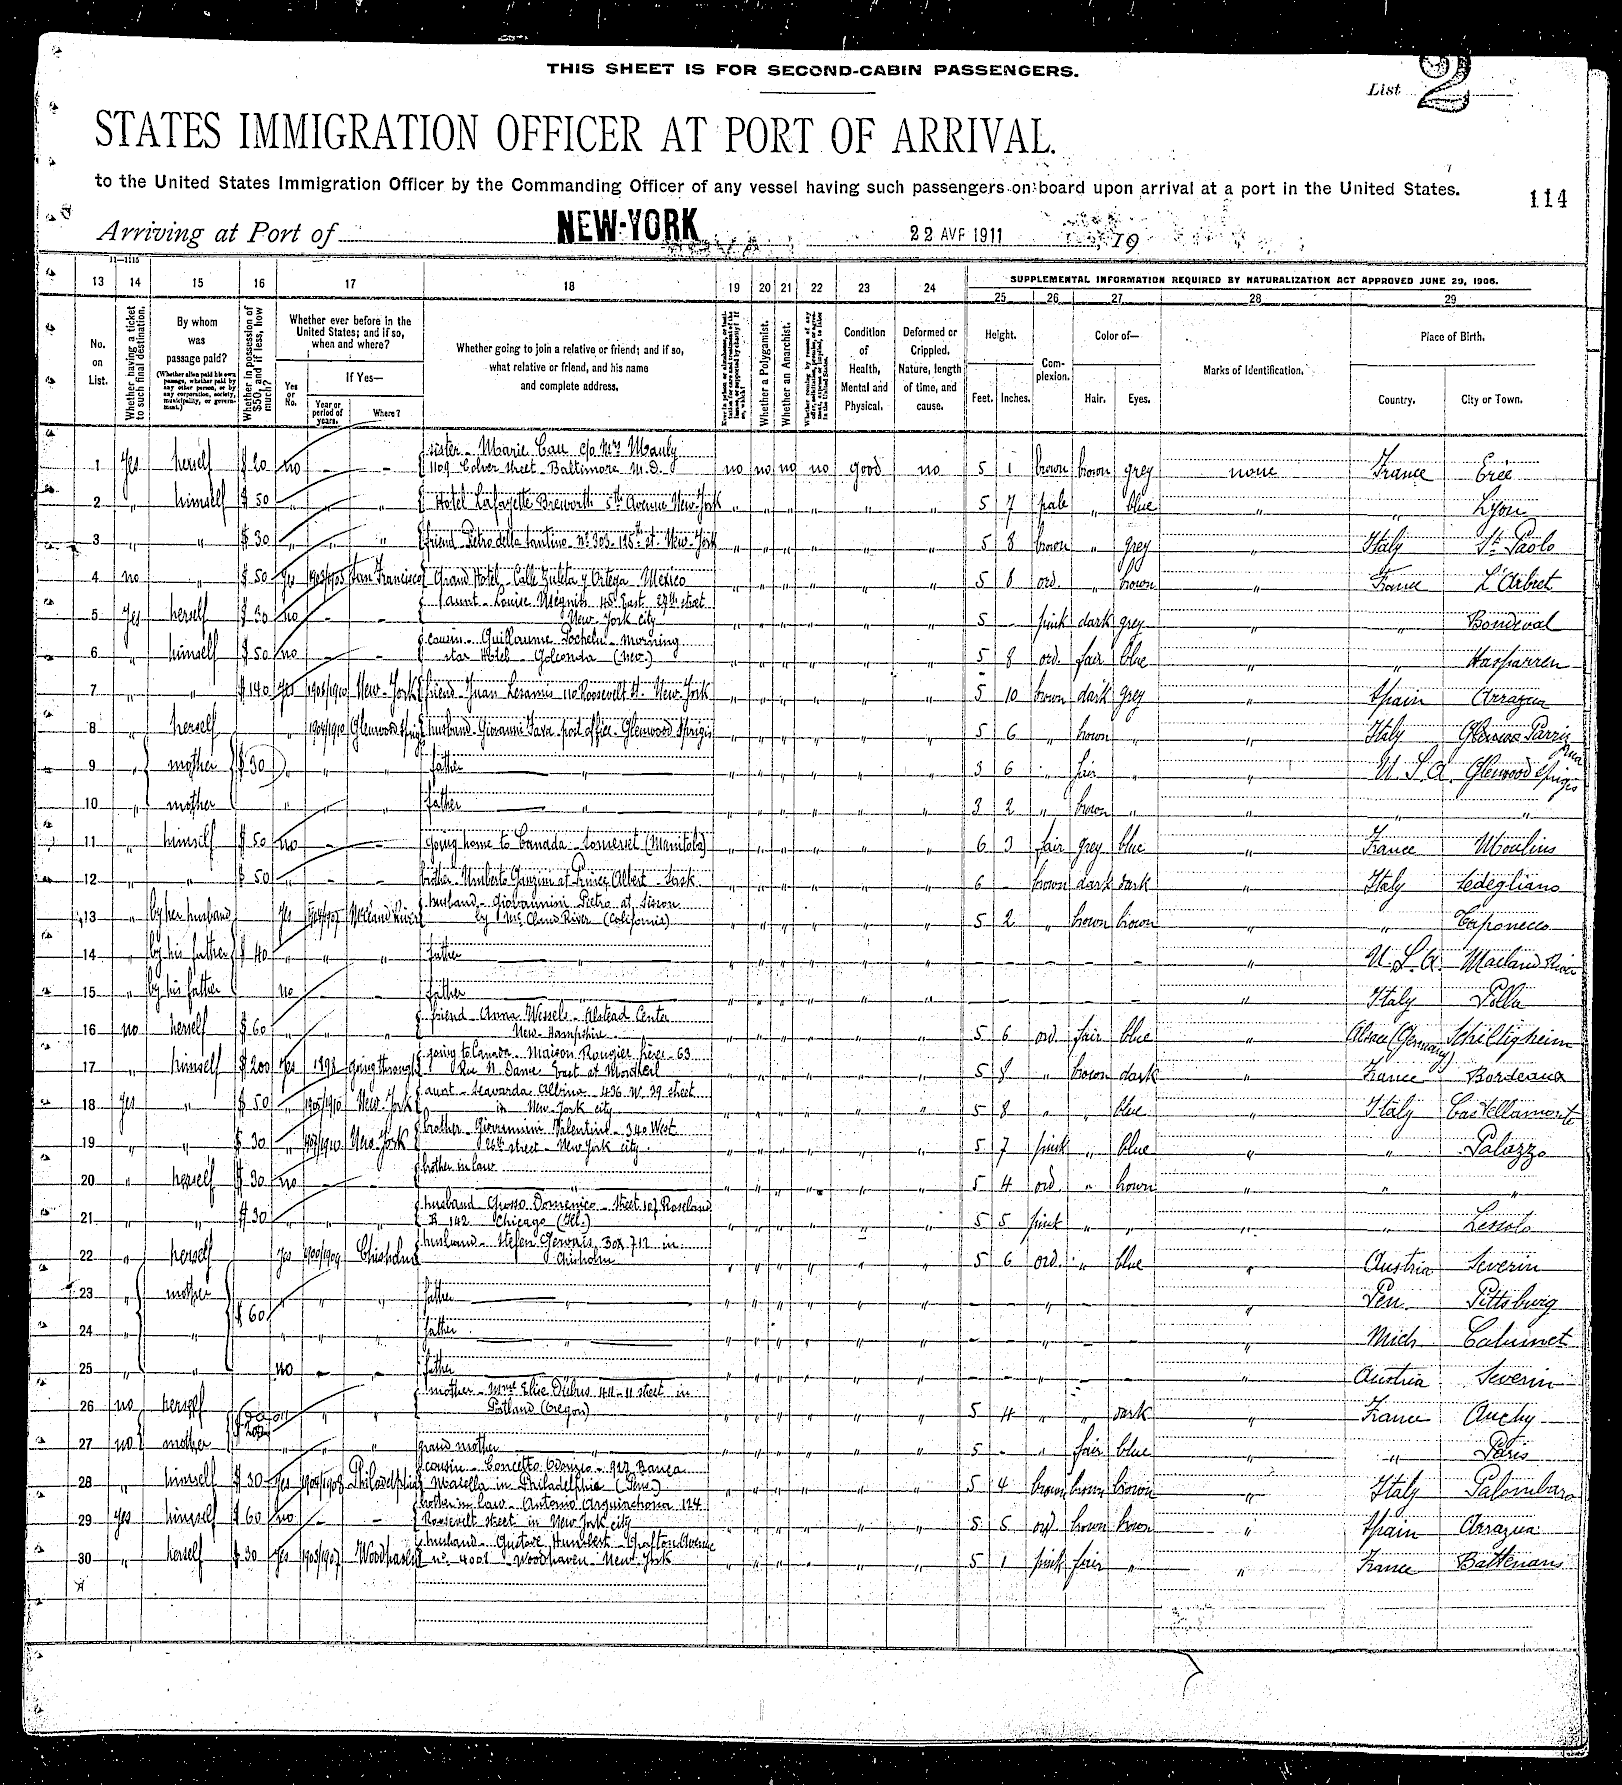 THIS SHEET IS FOR SECOND-CABIN PASSENGERS.
List 2
STATES IMMIGRATION OFFICER AT PORT OF ARRIVAL.
to the United States Immigration Officer by the Commanding Officer of any vessel having such passengers on board upon arrival at a port in the United States.
114
Arriving at Port of NEW-YORK 22 AVR 1911 , 19
11—1115
SUPPLEMENTAL INFORMATION REQUIRED BY NATURALIZATION ACT APPROVED JUNE 29, 1906.
13 14 15 16 17 18 19 20 21 22 23 24 25 26 27 28 29
No. on List.
Whether having a ticket to such final destination.
By whom was passage paid?
(Whether alien paid his own passage, whether paid by any other person, or by any corporation, society, municipality, or government.)
Whether in possession of $50, and if less, how much?
Whether ever before in the United States; and if so, when and where?
Yes or No.
If Yes—
Year or period of years.
Where?
Whether going to join a relative or friend; and if so, what relative or friend, and his name and complete address.
Whether a Polygamist.
Whether an Anarchist.
Condition of Health, Mental and Physical.
Deformed or Crippled. Nature, length of time, and cause.
Height.
Feet. Inches.
Complexion.
Color of—
Hair. Eyes.
Marks of Identification.
Place of Birth.
Country. City or Town.
1 Yes herself $20 no – – sister - Marie Cau c/o Mrs Mauly
1109 Colver street - Baltimore M.D. no no no no good no 5 1 brown brown grey none France Erée
2 " himself $50 " " Hotel Lafayette Brevoorth 5th Avenue New-York " " " " " " 5 7 pale " blue " " Lyon
3 " " $30 " " " friend Pietro della Santino - No 303 - 125th st. New-York " " " " " " 5 8 brown " grey " Italy St Paolo
4 no " $50 yes 1903/1905 San Francisco Grand Hotel - Calle Zuleta y Ortega Mexico " " " " " " 5 8 ord. " brown " France L'Arbret
5 Yes herself $30 no aunt - Louise 45 East 29th street
New-York city " " " " " " 5 – pink dark grey " " Bondeval
6 " himself $50 no – – cousin - Guillaume Pochelu - Morning
star Hotel - Golconda (Nev.) " " " " " " 5 8 ord. fair blue " " Hasparren
7 " " $140 yes 1905/1910 New-York friend - Juan 110 Roosevelt st. New-York " " " " " " 5 10 brown dark grey " Spain Arrazua
8 " herself 1904/1910 Glenwood Springs husband Giovanni Fava post office - Glenwood Springs " " " " " " 5 6 " brown " " Italy
9 " mother $30 " " " father " " " " " " " 3 6 " fair " " U.S.A. Glenwood Springs
10 " mother " " " father " " " " " " " 3 2 " brown " " " "
11 " himself $50 no – – going home to Canada - Somerset (Manitoba) " " " " " " 6 3 fair grey blue " France Moulins
12 " " $50 " – – brother - Umberto Ganzini at Prince Albert - Sask. " " " " " " 6 – brown dark dark " Italy Sedegliano
13 " by her husband yes McCland River husband - Giovannini Pietro at Sisson
by Mc Cloud River (California) " " " " " " 5 2 " brown brown " " Caponecco
14 " by his father $40 " " " father " " " " " " " – – – – – " U.S.A. Macland River
15 " by his father no – – father " " " " " " – – – – – " Italy Pilla
16 no herself $60 " " " friend - Anna Wessels - Alstead Center
New-Hampshire " " " " " " 5 6 ord. fair blue " Alsace (Germany) Schiltigheim
17 " himself $200 yes 1898 going through going to Canada - Maison Rougier frères - 63
Rue N. Dame East at Montreal " " " " " " 5 8 " brown dark " France Bordeaux
18 Yes " $50 " 1905/1910 New-York aunt - Seavarda Albina - 436 W. 29 street
in New-York city " " " " " " 5 8 " " blue " Italy Castellamonte
19 " " $30 " 1907/1910 New-York brother - Giovannini Valentino - 340 West
26th street - New-York city " " " " " " 5 7 pink " blue " " Palazzo
20 " herself $30 no brother in law " " " " " " " 5 4 ord. " brown " " "
21 " " $30 " " " husband Grosso Domenico - Street 107 Roseland
B 142 Chicago (Ill.) " " " " " " 5 5 pink " " " " Lessolo
22 " herself yes 1900/1909 Chisholm husband - Stefen Gervais Box 712 in
Chisholm " " " " " " 5 6 ord. " blue " Austria Severin
23 " mother " " " father " " " " " " " – – " – – " Pen. Pittsburg
$60
24 " " " " " father " " " " " " " – – – – – " Mich. Calumet
25 " " no – – father " " " " " " – – – – – " Austria Severin
26 no herself " " " mother - Mme Elise Dubus 411 - 11 street in
Portland (Oregon) " " " " " " 5 4 " " dark " France Auchy
27 no mother " " " grand mother " " " " " " " 5 – " fair blue " " Paris
28 " himself $30 yes 1904/1908 Philadelphia cousin - Concetto Odorizio - 912 Banca
in Philadelphia (Penn.) " " " " " " 5 4 brown brown brown " Italy Palombaro
29 yes himself $60 no – – brother in law - Antonio 124
Roosevelt street in New-York city " " " " " " 5 5 ord. brown brown " Spain Arrazua
30 " herself $30 yes 1905/1907 Woodhaven husband - Gustave Humbert - Grafton Avenue
no. 4001 Woodhaven New-York " " " " " " 5 1 pink fair " " France Battenans